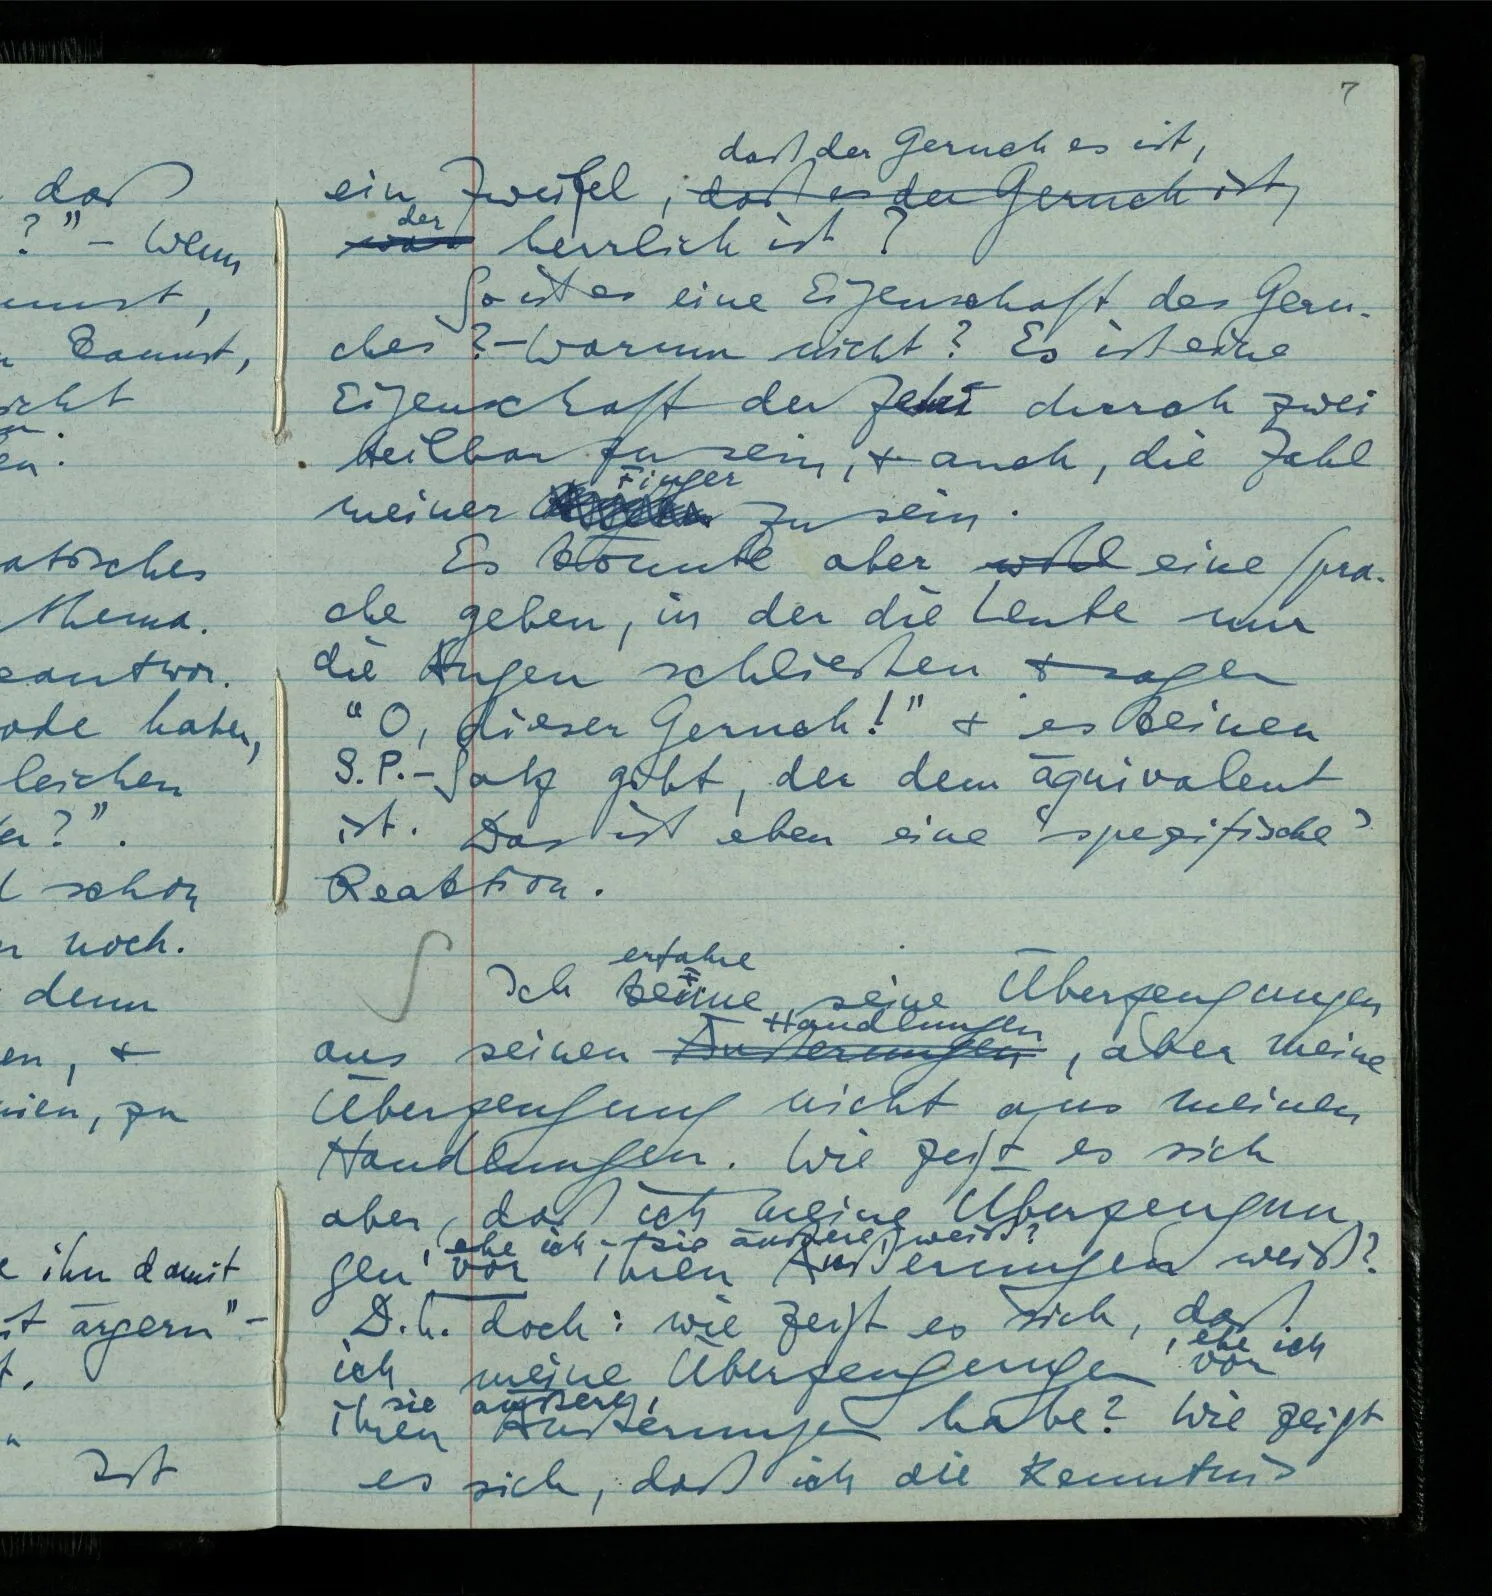 7
daß der Geruch es ist,
ein Zweifel, daß es der Geruch ist,
der
was herrlich ist?
So ist es eine Eigenschaft des Geru-
ches? – Warum nicht? Es ist eine
Eigenschaft der Zehn durch zwei
teilbar zu sein, + auch, die Zahl
Finger
meiner zu sein.
Es könnte aber wohl eine Spra-
che geben, in der die Leute nur
die Augen schließen + sagen
"O, dieser Geruch!" + es keinen
S.P.-Satz gibt, der dem äquivalent
ist. Das ist eben eine 'spezifische'
Reaktion.
erfahre
Ich kenne seine Überzeugungen
Handlungen
aus seinen Äußerungen, aber meine
Überzeugung nicht aus meinen
Handlungen. Wie zeigt es sich
aber, daß ich meine Überzeugun
, ehe ich sie äußere, weiß?
gen vor ihren Äußerungen weiß?
D.h. doch: wie zeigt es sich, daß
, ehe ich
ich meine Überzeugungen vor
sie äußere,
ihren Äußerungen habe? Wie zeigt
es sich, daß ich die Kenntnis
daß
?" – Wenn
kannst,
atisches
Thema.
eantwor-
ode haben,
leichen
?".
schon
noch.
denn
en, +
, zu
ihn damit
ärgern" –
t.
Ist